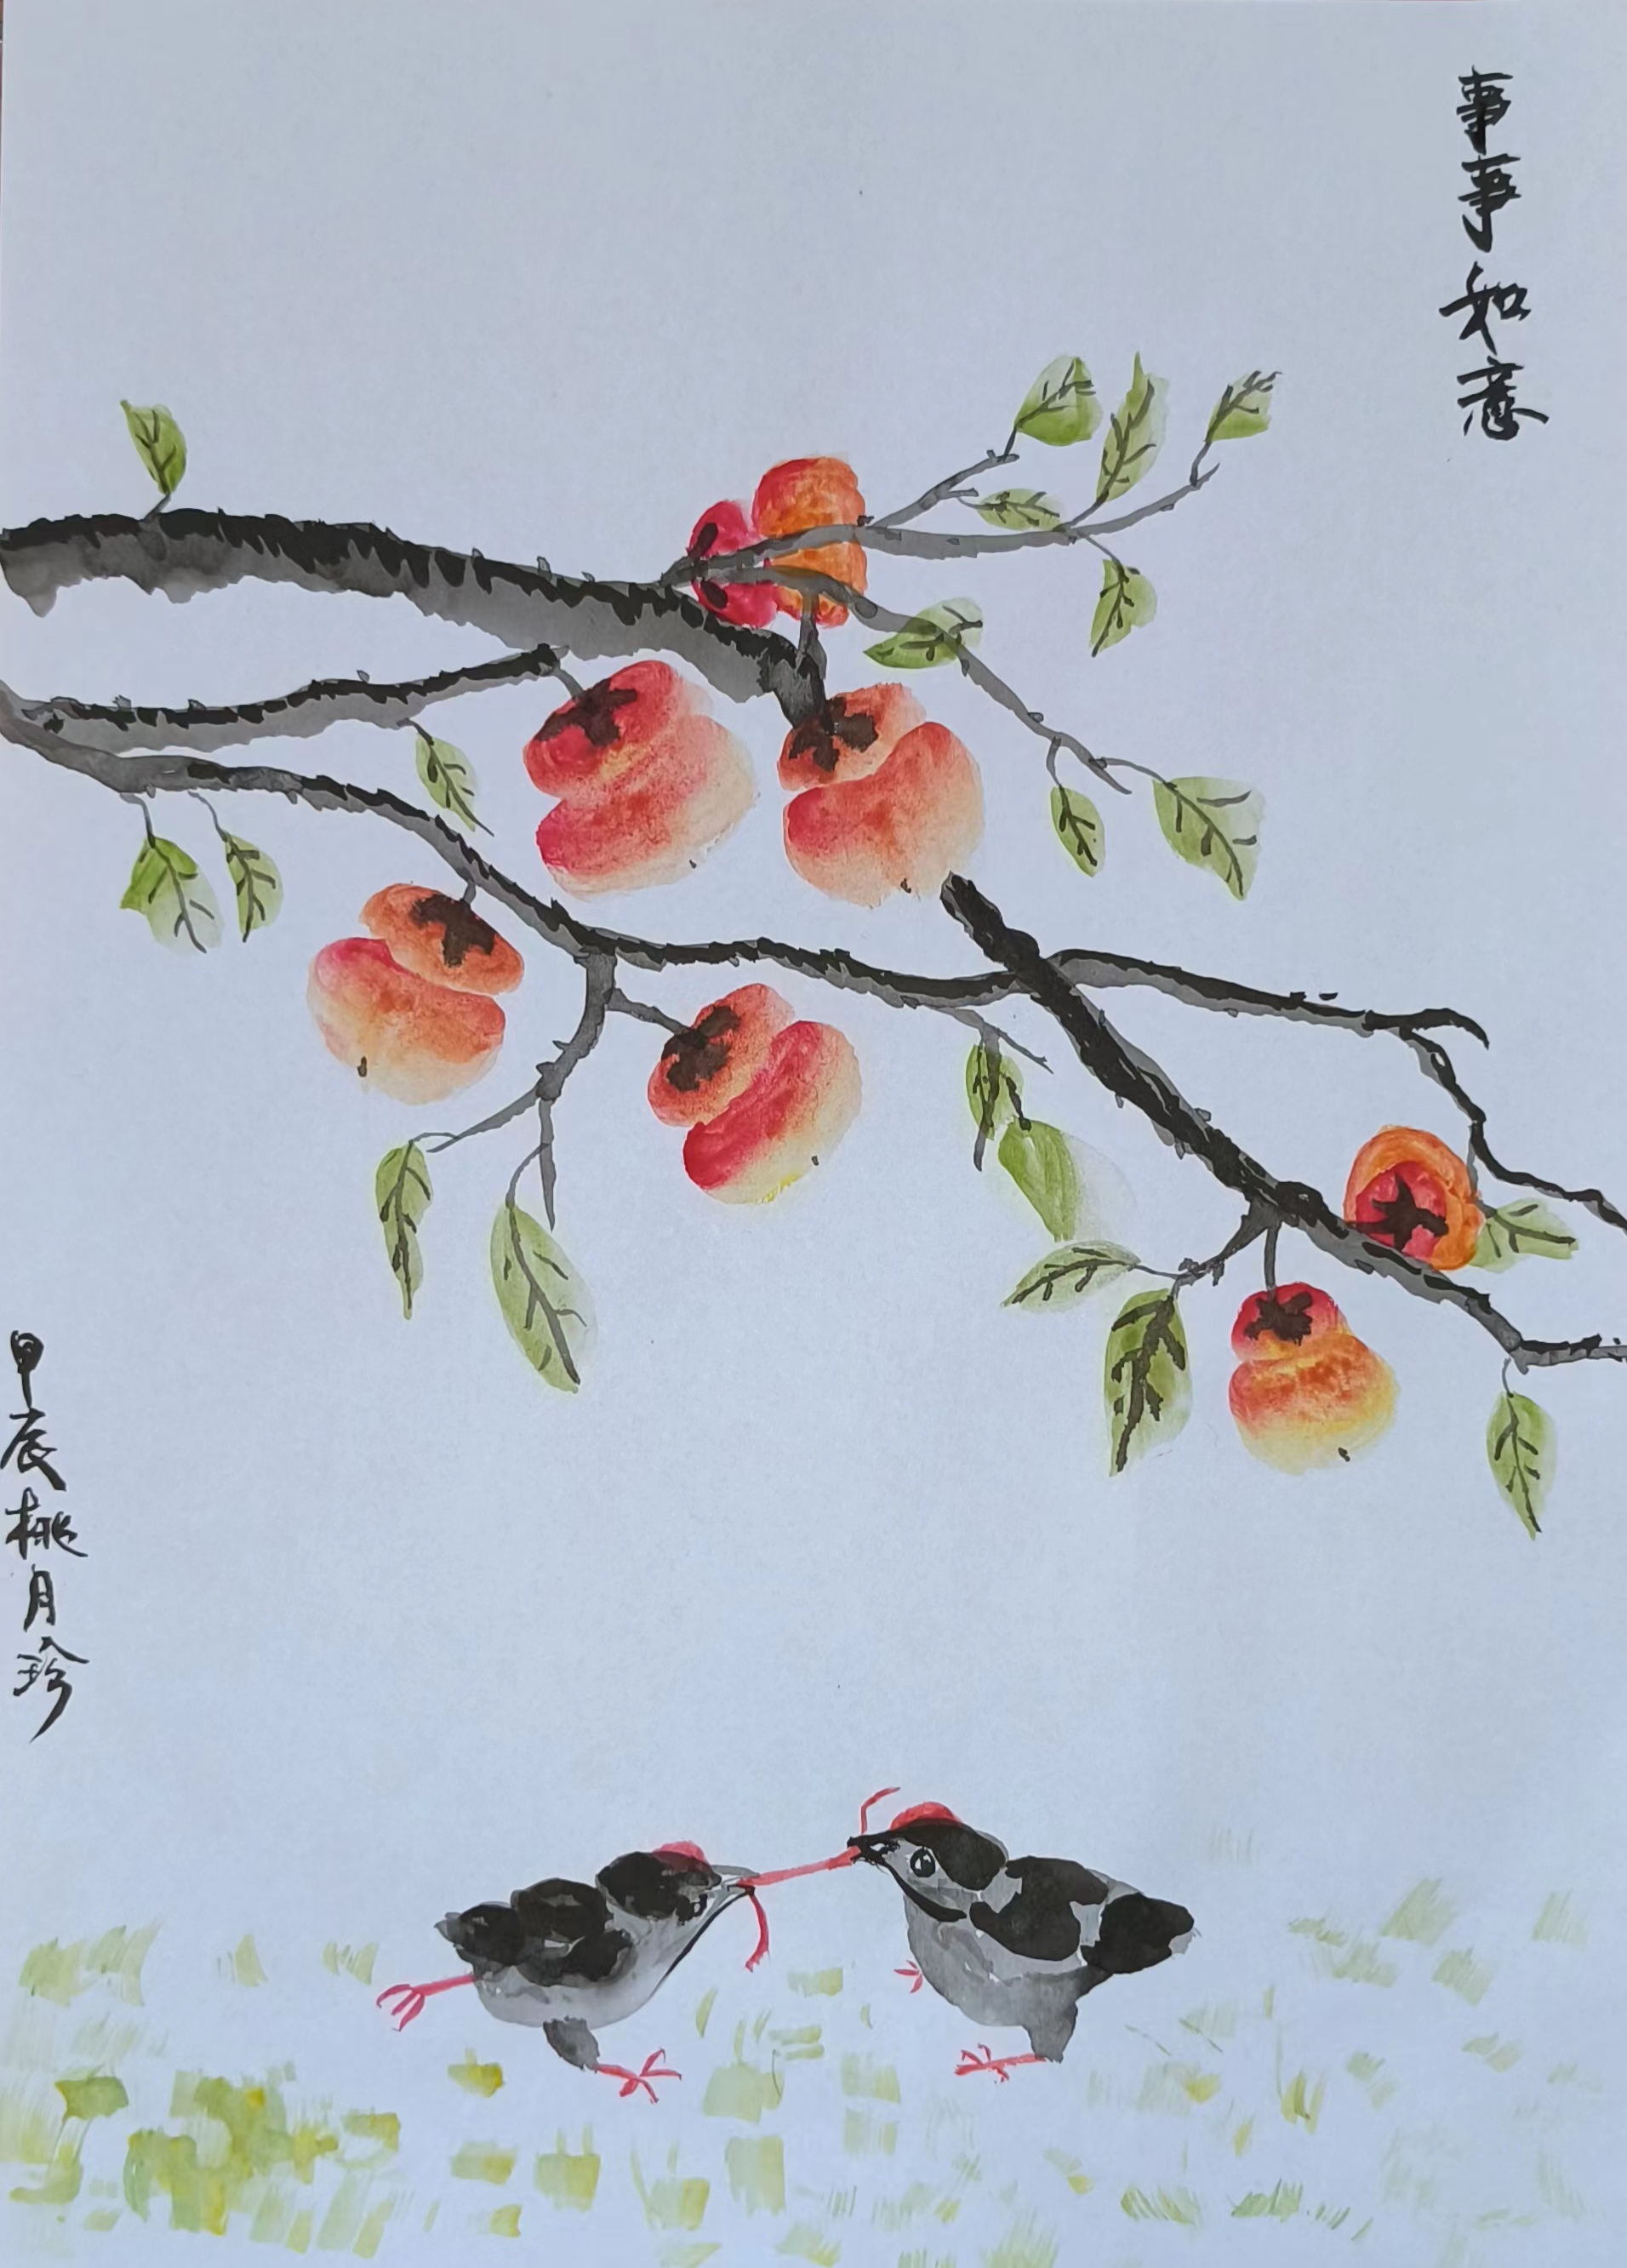 事事如意
甲辰桃月珍